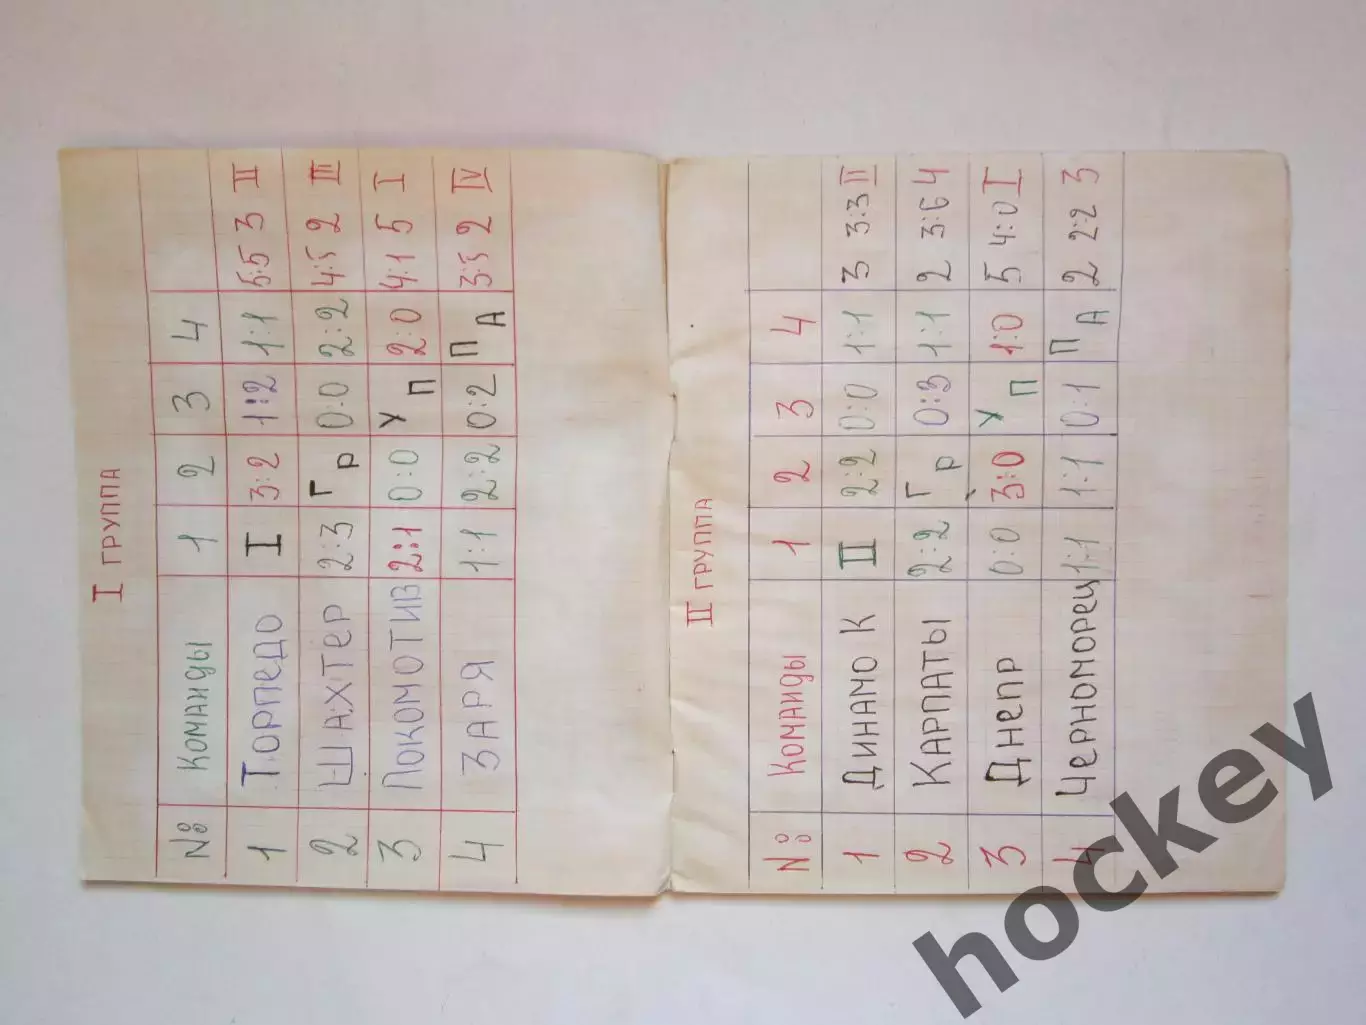 I ГРУППА
№ Команды 1 2 3 4
1 Торпедо I 3:2 1:2 1:1 5:5 3 II
2 Шахтер 2:3 Гр 0:0 2:2 4:5 2 III
3 Локомотив 2:1 0:0 Уп 2:0 4:1 5 I
4 Заря 1:1 2:2 0:2 ПА 3:5 2 IV
II ГРУППА
№ Команды 1 2 3 4
1 Динамо К II 2:2 0:0 1:1 3 3:3 II
2 Карпаты 2:2 Гр 0:3 1:1 2 3:6 4
3 Днепр 0:0 3:0 Уп 1:0 5 4:0 I
4 Черноморец 1:1 1:1 0:1 ПА 2 2:2 3
hockey